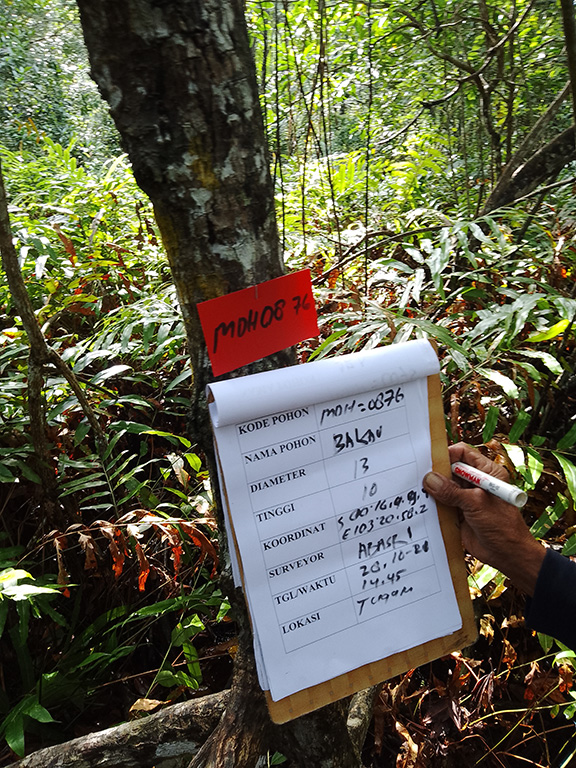 MDH08 76
KODE POHON MDH=0876
NAMA POHON BAKAU
DIAMETER 13
TINGGI 10
KOORDINAT S 00-16.
E103-20.58.2
SURVEYOR ABASRI
TGL/WAKTU 28.10-21
14.45
LOKASI
SNOWMAN